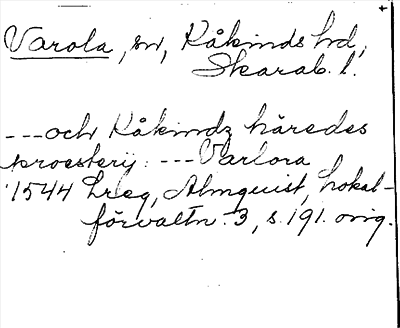 Varola, sn, Kåkinds hd,
Skarab. l.
---och Kåkindz häredes
proesterij: ---Varlora
1544 Lreg, Almquist, Lokal-
förvaltn. 3, s. 191. orig.